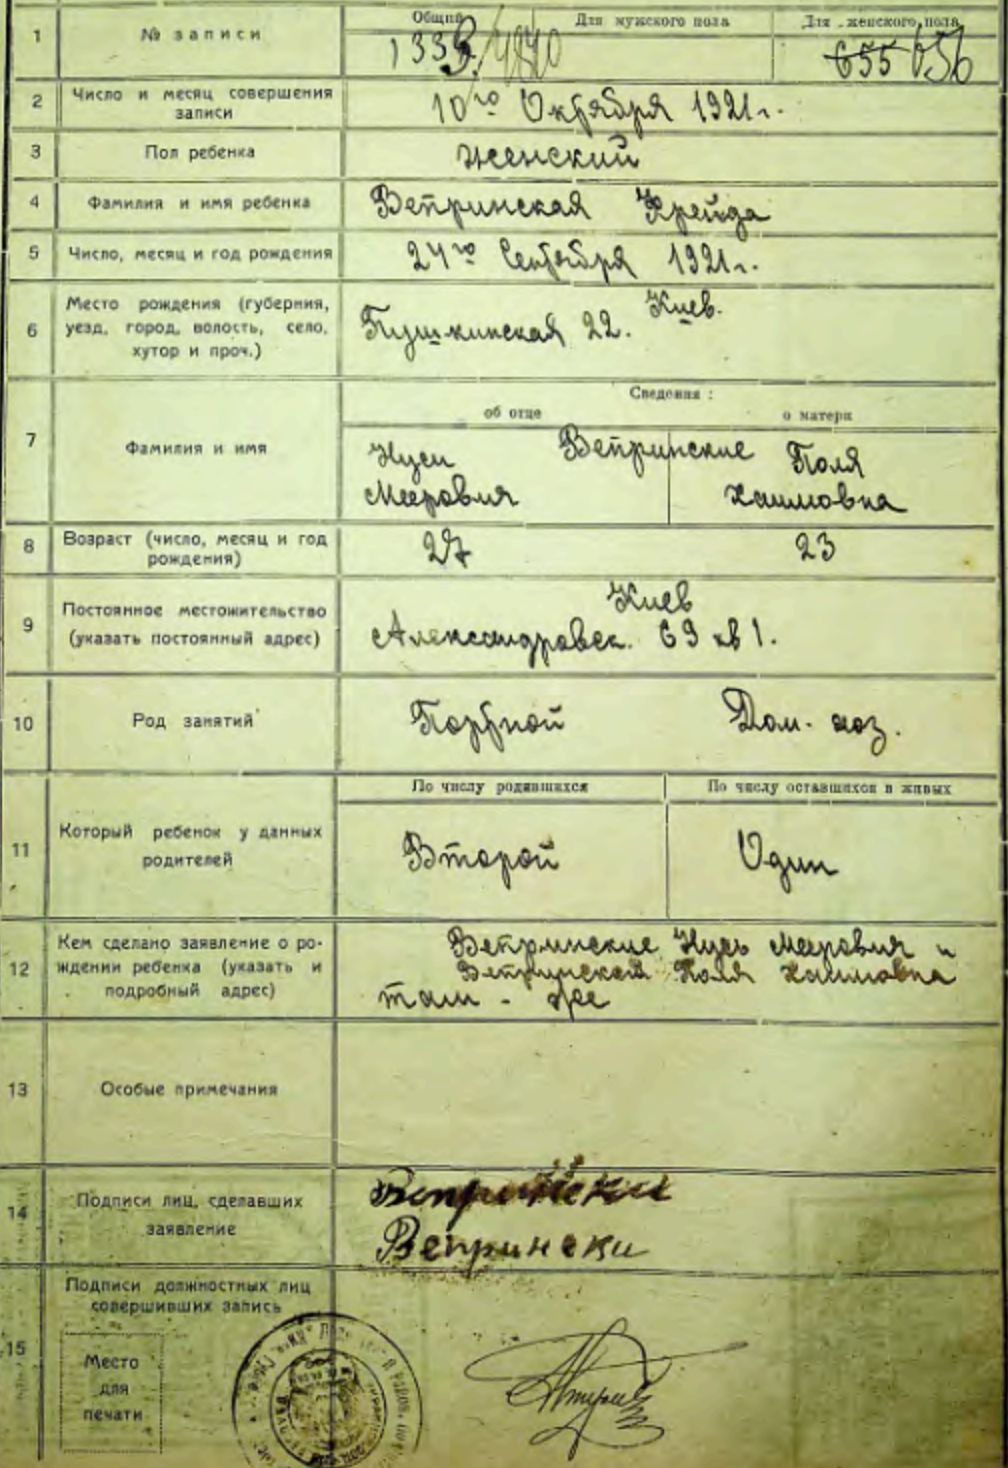 1 № записи Общий Для мужского пола Для женского пола
1339/1340 655 656
2 Число и месяц совершения записи
10го Октября 1921г.
3 Пол ребенка женский
4 Фамилия и имя ребенка Вепринская Фрейда
5 Число, месяц и год рождения 24го Сентября 1921г.
6 Место рождения (губерния, уезд, город, волость, село, хутор и проч.)
Киев.
Пушкинская 22.
7 Фамилия и имя
Сведения :
об отце о матери
Вепринские
Нусн Поля
Меерович Хаимовна
8 Возраст (число, месяц и год рождения) 27 23
9 Постоянное местожительство (указать постоянный адрес)
Киев
Александровск. 69 кв 1.
10 Род занятий Портной Дом. хоз.
11 Который ребенок у данных родителей
По числу родившихся По числу оставшихся в живых
Второй Один
12 Кем сделано заявление о рождении ребенка (указать и подробный адрес)
Вепринские Нусь Меерович и
Вепринская Поля Хаимовна
там - же
13 Особые примечания
14 Подписи лиц, сделавших заявление
Вепрински
Вепрински
15 Подписи должностных лиц совершивших запись
Место
для
печати